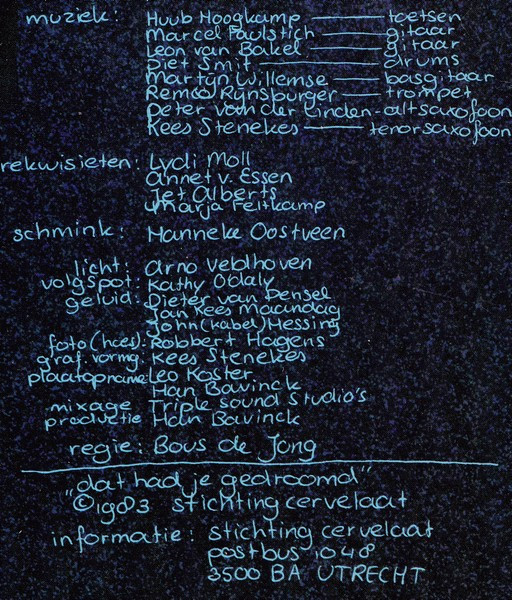 muziek: Huub Hoogkamp — toetsen
Marcel Paulstich — gitaar
Leon van Bakel — gitaar
Piet Smit — drums
Martijn Willemse — basgitaar
Remco Rijnsburger — trompet
Peter van der Linden - altsaxofoon
Kees Stenekes — tenorsaxofoon
rekwisieten: Lydi Moll
Annet v. Essen
Jet Alberts
Marja Feltkamp
schmink: Hanneke Oostveen
licht: Arno Veldhoven
volgspot: Kathy Odlaly
geluid: Dieter van Densel
Jan Kees Maandag
John (Kabel) Messing
foto (hoes): Robbert Hagens
graf. vormg: Kees Stenekes
plaatopname Leo Koster
Han Bavinck
mixage Triple Sound Studio's
productie Han Bavinck
regie: Bous de Jong
"dat had je gedroomd"
©1983 stichting cervelaat
informatie: stichting cervelaat
postbus 1048
3500 BA UTRECHT